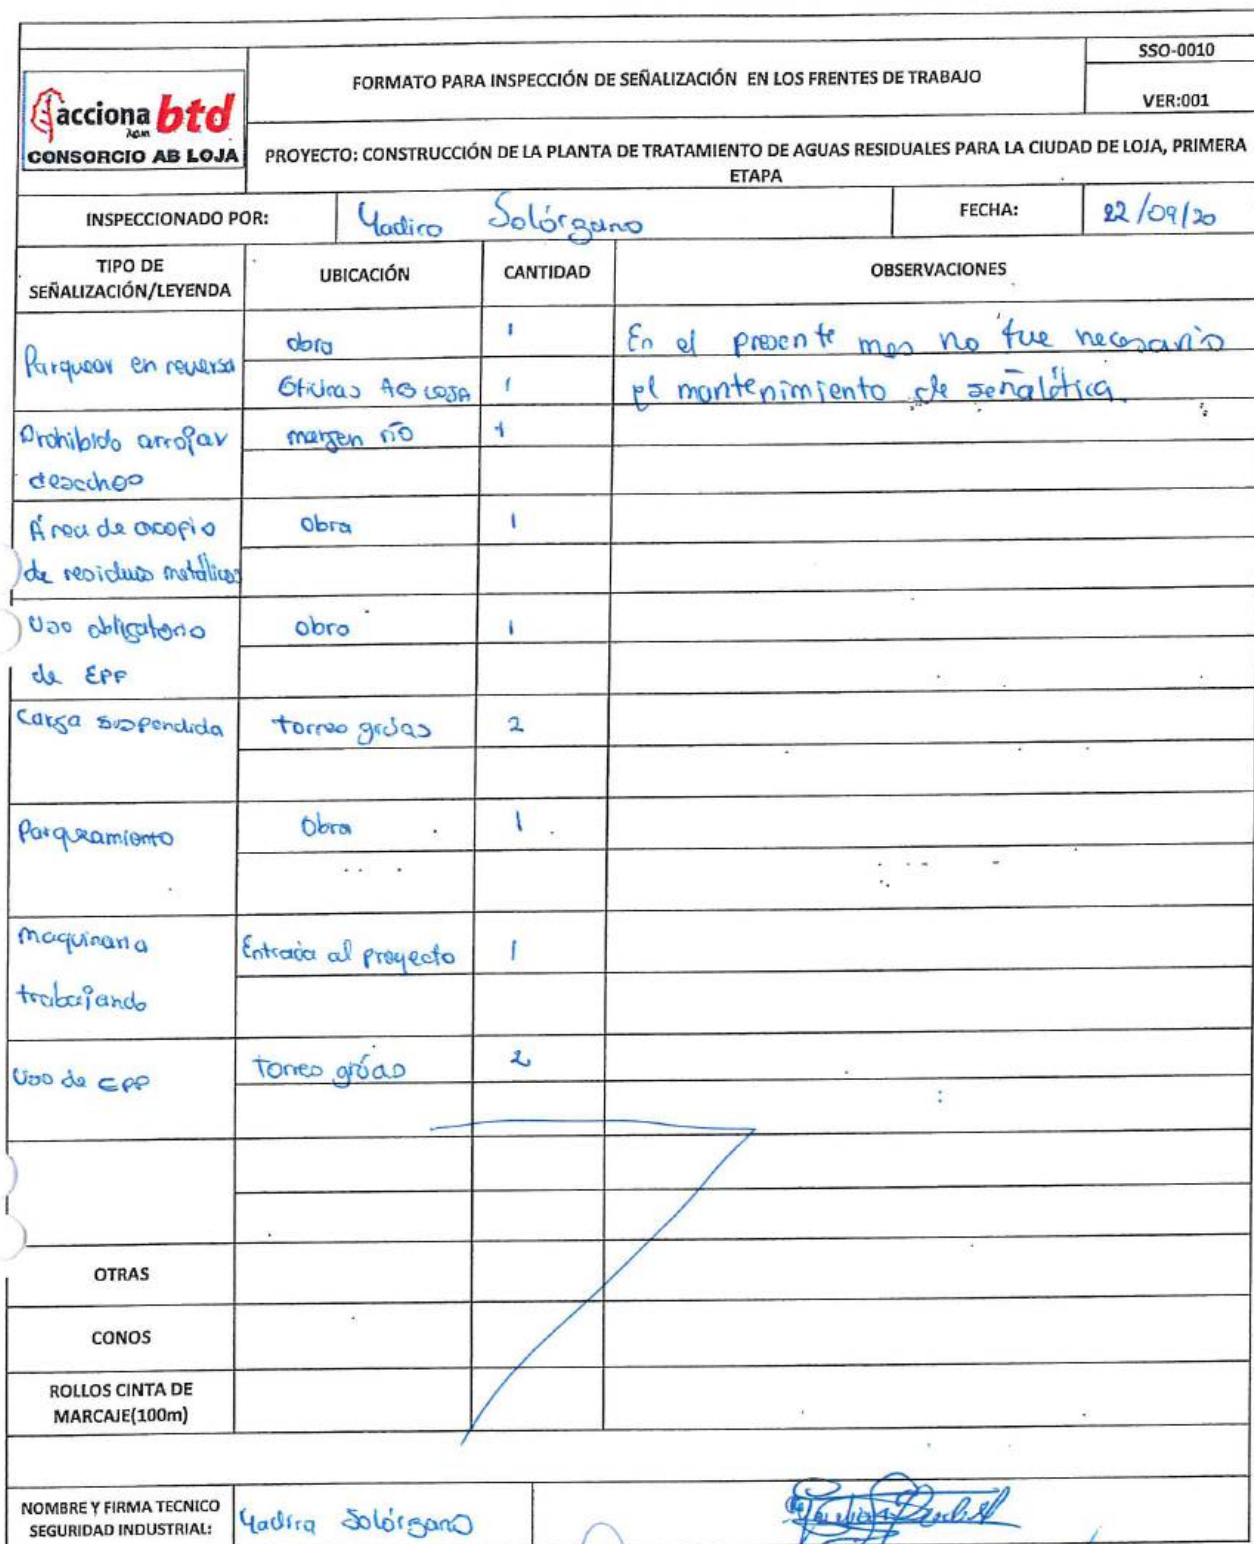 SSO-0010
FORMATO PARA INSPECCIÓN DE SEÑALIZACIÓN EN LOS FRENTES DE TRABAJO
VER:001
acciona btd
CONSORCIO AB LOJA
PROYECTO: CONSTRUCCIÓN DE LA PLANTA DE TRATAMIENTO DE AGUAS RESIDUALES PARA LA CIUDAD DE LOJA, PRIMERA
ETAPA
INSPECCIONADO POR: Yadira Solórzano FECHA: 22/09/20
TIPO DE
SEÑALIZACIÓN/LEYENDA UBICACIÓN CANTIDAD OBSERVACIONES
Parquear en reversa obra 1 En el presente mes no fue necesario
Oficinas AB LOJA 1 el mantenimiento de señalética.
Prohibido arrojar margen río 1
desechos
Área de acopio Obra 1
de residuos metálicos
Uso obligatorio obra 1
de EPP
Carga suspendida torres grúas 2
Parqueamiento Obra 1
maquinaria Entrada al proyecto 1
trabajando
Uso de EPP torres grúas 2
OTRAS
CONOS
ROLLOS CINTA DE
MARCAJE(100m)
NOMBRE Y FIRMA TECNICO
SEGURIDAD INDUSTRIAL: Yadira Solórzano